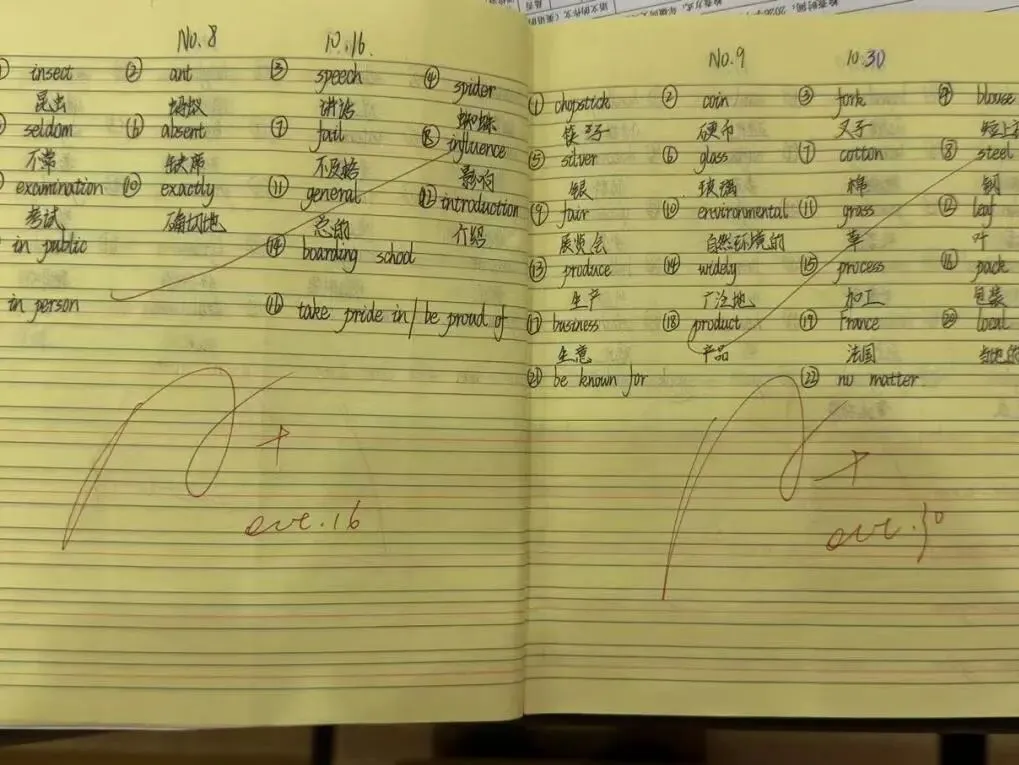 No.8 10.16.
① insect ② ant ③ speech ④ spider
昆虫 蚂蚁 讲话 蜘蛛
seldom ⑥ absent ⑦ fail ⑧ influence
不常 缺席 不及格 影响
examination ⑩ exactly ⑪ general ⑫ introduction
考试 确切地 总的 介绍
in public ⑭ boarding school
in person ⑯ take pride in/be proud of
A+
oct.16
No.9 10.30
① chopstick ② coin ③ fork ④ blouse
筷子 硬币 叉子 短上衣
⑤ silver ⑥ glass ⑦ cotton ⑧ steel
银 玻璃 棉 钢
⑨ fair ⑩ environmental ⑪ grass ⑫ leaf
展览会 自然环境的 草 叶
⑬ produce ⑭ widely ⑮ process ⑯ pack
生产 广泛地 加工 包装
⑰ business ⑱ product ⑲ France ⑳ local
生意 产品 法国 当地的
㉑ be known for ㉒ no matter
A+
oct.30